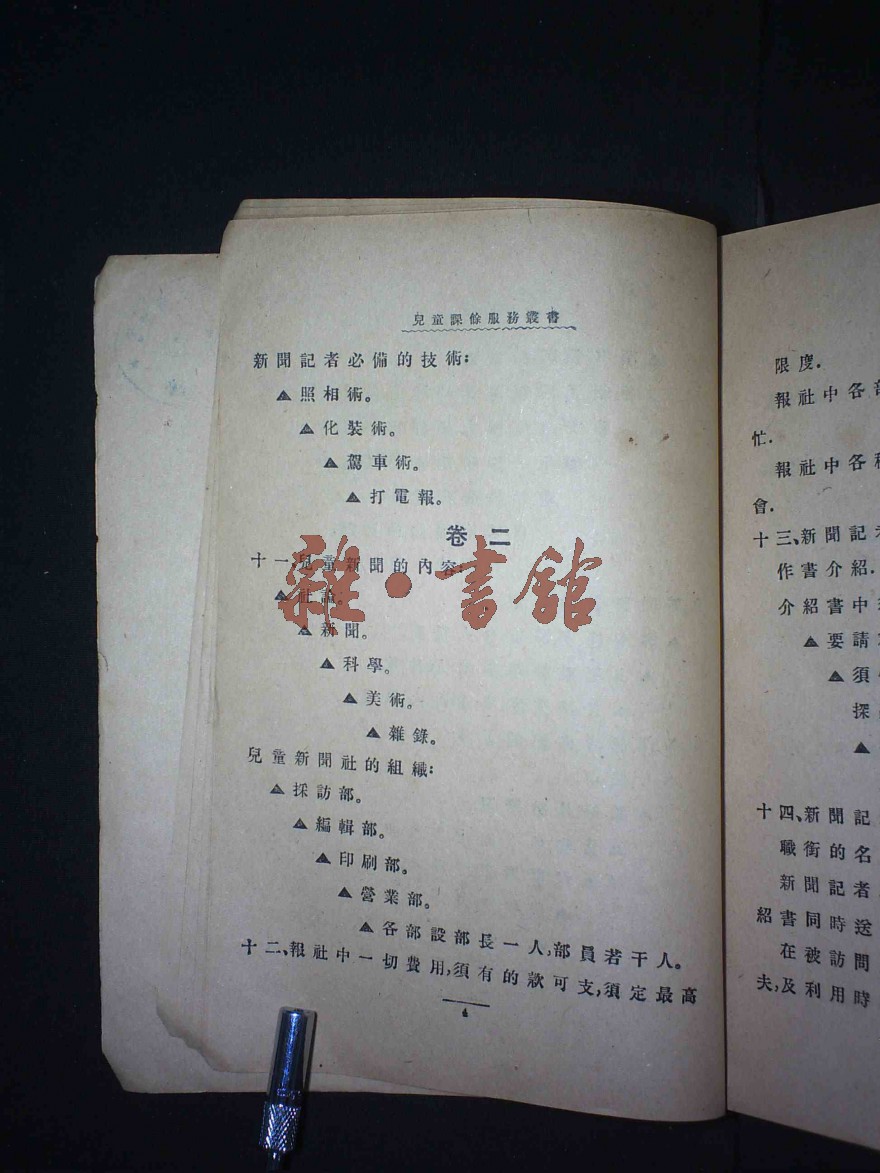 兒童課餘服務叢書
新聞記者必備的技術:
▲照相術。
▲化裝術。
▲駕車術。
▲打電報。
卷二
十一、兒童新聞的內容:
▲社論。
▲新聞。
▲科學。
▲美術。
▲雜錄。
兒童新聞社的組織:
▲採訪部。
▲編輯部。
▲印刷部。
▲營業部。
▲各部設部長一人,部員若干人。
十二、報社中一切費用,須有的款可支,須定最高
4
雜·書館
限度.
報社中各部
忙.
報社中各種
會.
十三、新聞記者
作書介紹.
介紹書中
▲要請
▲須
探
▲
十四、新聞記
職銜的名
新聞記者
紹書同時送
在被訪問
夫,及利用時